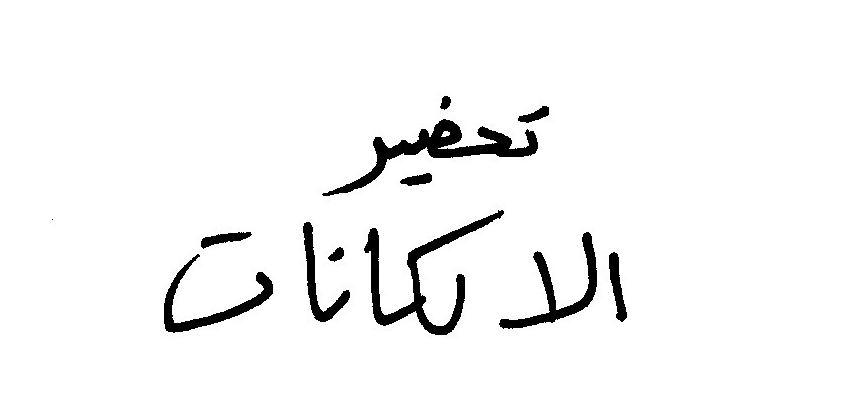 تحضير
الالكانات